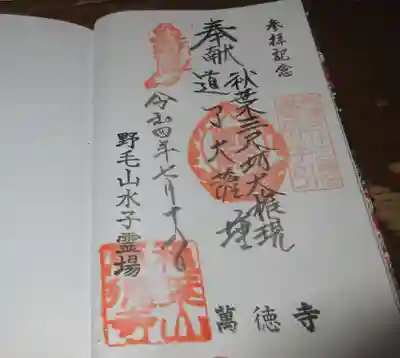 参拝記念
奉献
秋葉三尺坊大権現
道了大薩埵
令和四年七月十八
野毛山水子霊場
萬徳寺